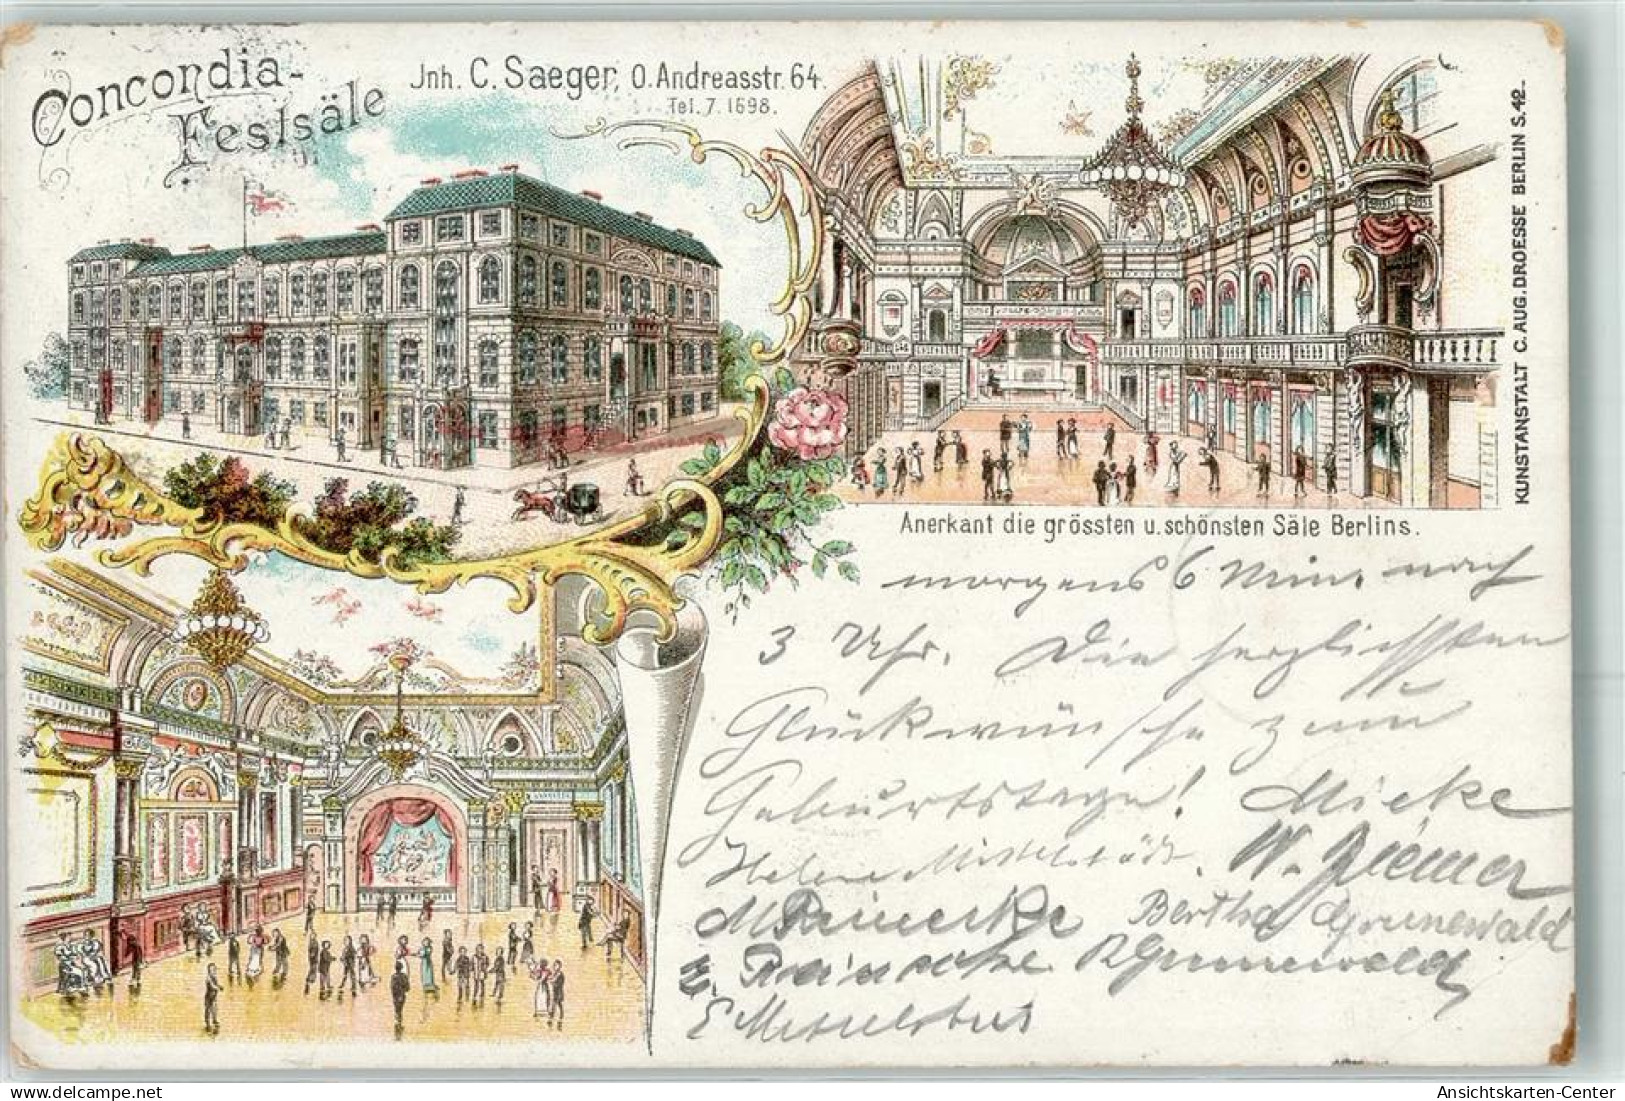 Concordia-
Festsäle
Jnh. C. Saeger, O. Andreasstr. 64.
Tel. 7. 1698.
KUNSTANSTALT C. AUG. DROESSE BERLIN S. 42.
Anerkant die grössten u. schönsten Säle Berlins.
morgens 6 Min. nach
3 Uhr. Die herzlichsten
Glückwünsche zum
Geburtstage! Mieke
Helene Mittelstädt. W. Ziemer
M Reinecke Bertha Grunewald
E. Reinecke R Grunewald
E Mittelstädt
delcampe.net
Ansichtskarten-Center